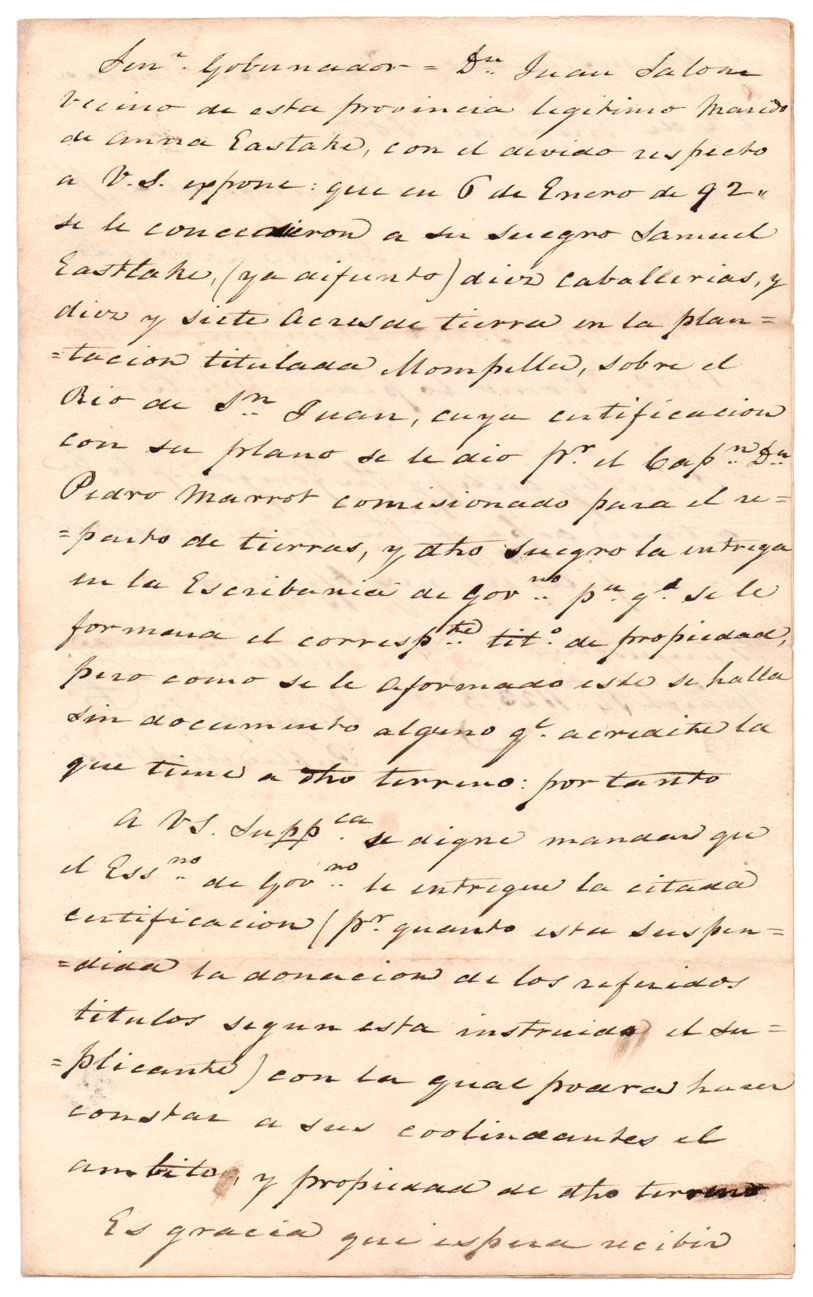 Senr. Gobernador = Dn Juan Salom
Vecino de esta provincia legitimo Marido
de Anna Eastake, con el devido respecto
a V.S. expone: que en 6 de Enero de 92"
se le concedieron a su suegro Samuel
Eastlake, (ya difunto) diez caballerias, y
diez y siete Acres de tierra en la plan=
=tacion titulada Mompelle, sobre el
Rio de Sn Juan, cuya certificacion
con su plano se le dio pr. el Capn. Dn
Pedro Marrot comisionado para el re=
=parto de tierras, y dho suegro la entrega
en la Escribania de Govno. pa. qe. se le
formara el correspte. tito. de propiedad,
pero como se le a formado este se halla
sin documento alguno qe. acredite la
que tiene a dho terreno: por tanto
A VS. Suppca. se digne mandar que
el Essno. de Govno. le entregue la citada
certificacion (pr. quanto esta suspen=
=dida la donacion de los referidos
titulos segun esta instruido el su=
=plicante) con la qual podra hacer
constar a sus coolindantes el
ambito, y propiedad de dho terreno
Es gracia que espera recibir